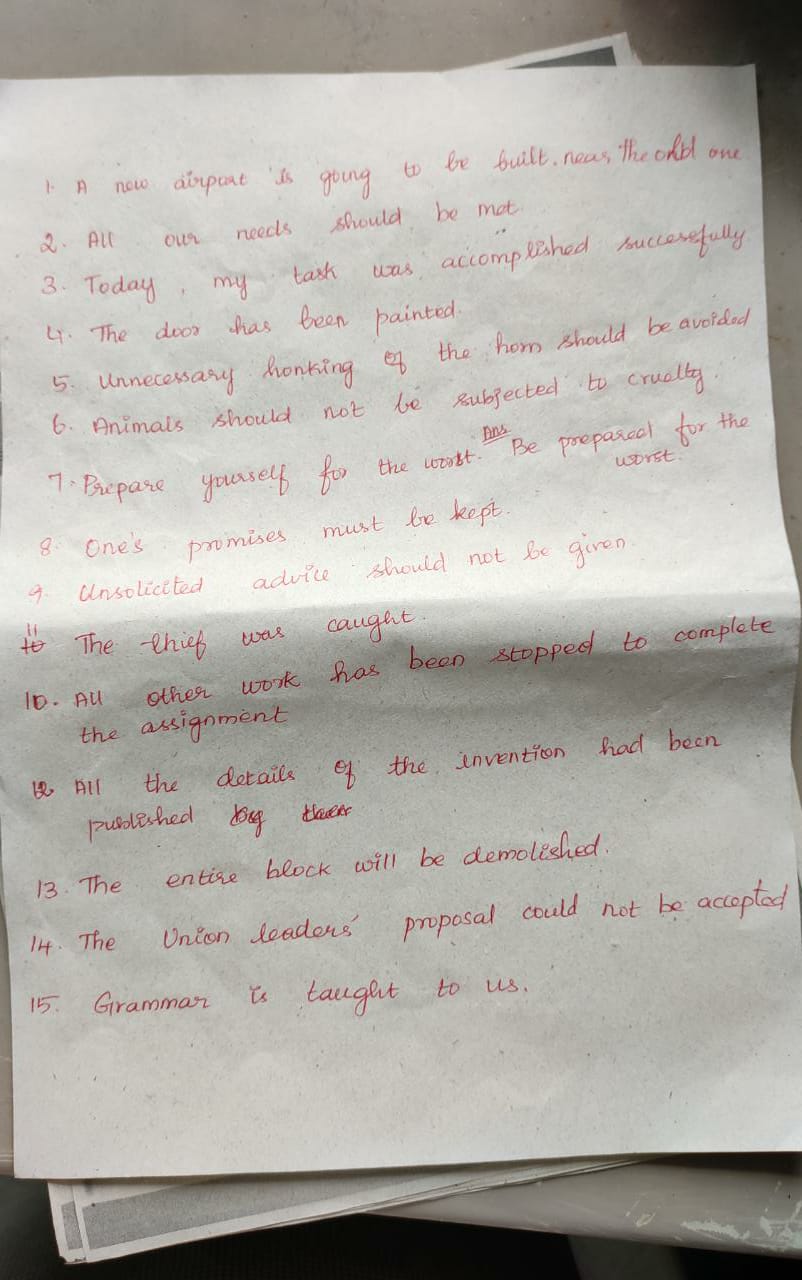 1. A new airport is going to be built. near, the old one
2. All our needs should be met.
3. Today, my task was accomplished successfully
4. The door has been painted.
5. Unnecessary honking of the horn should be avoided
6. Animals should not be subjected to cruelty.
7. Prepare yourself for the worst. Ans Be prepared for the
worst.
8. One's promises must be kept.
9. Unsolicited advice should not be given
11 The thief was caught.
10. All other work has been stopped to complete
the assignment
12 All the details of the invention had been
published by
13. The entire block will be demolished.
14. The Union leaders' proposal could not be accepted
15. Grammar is taught to us.